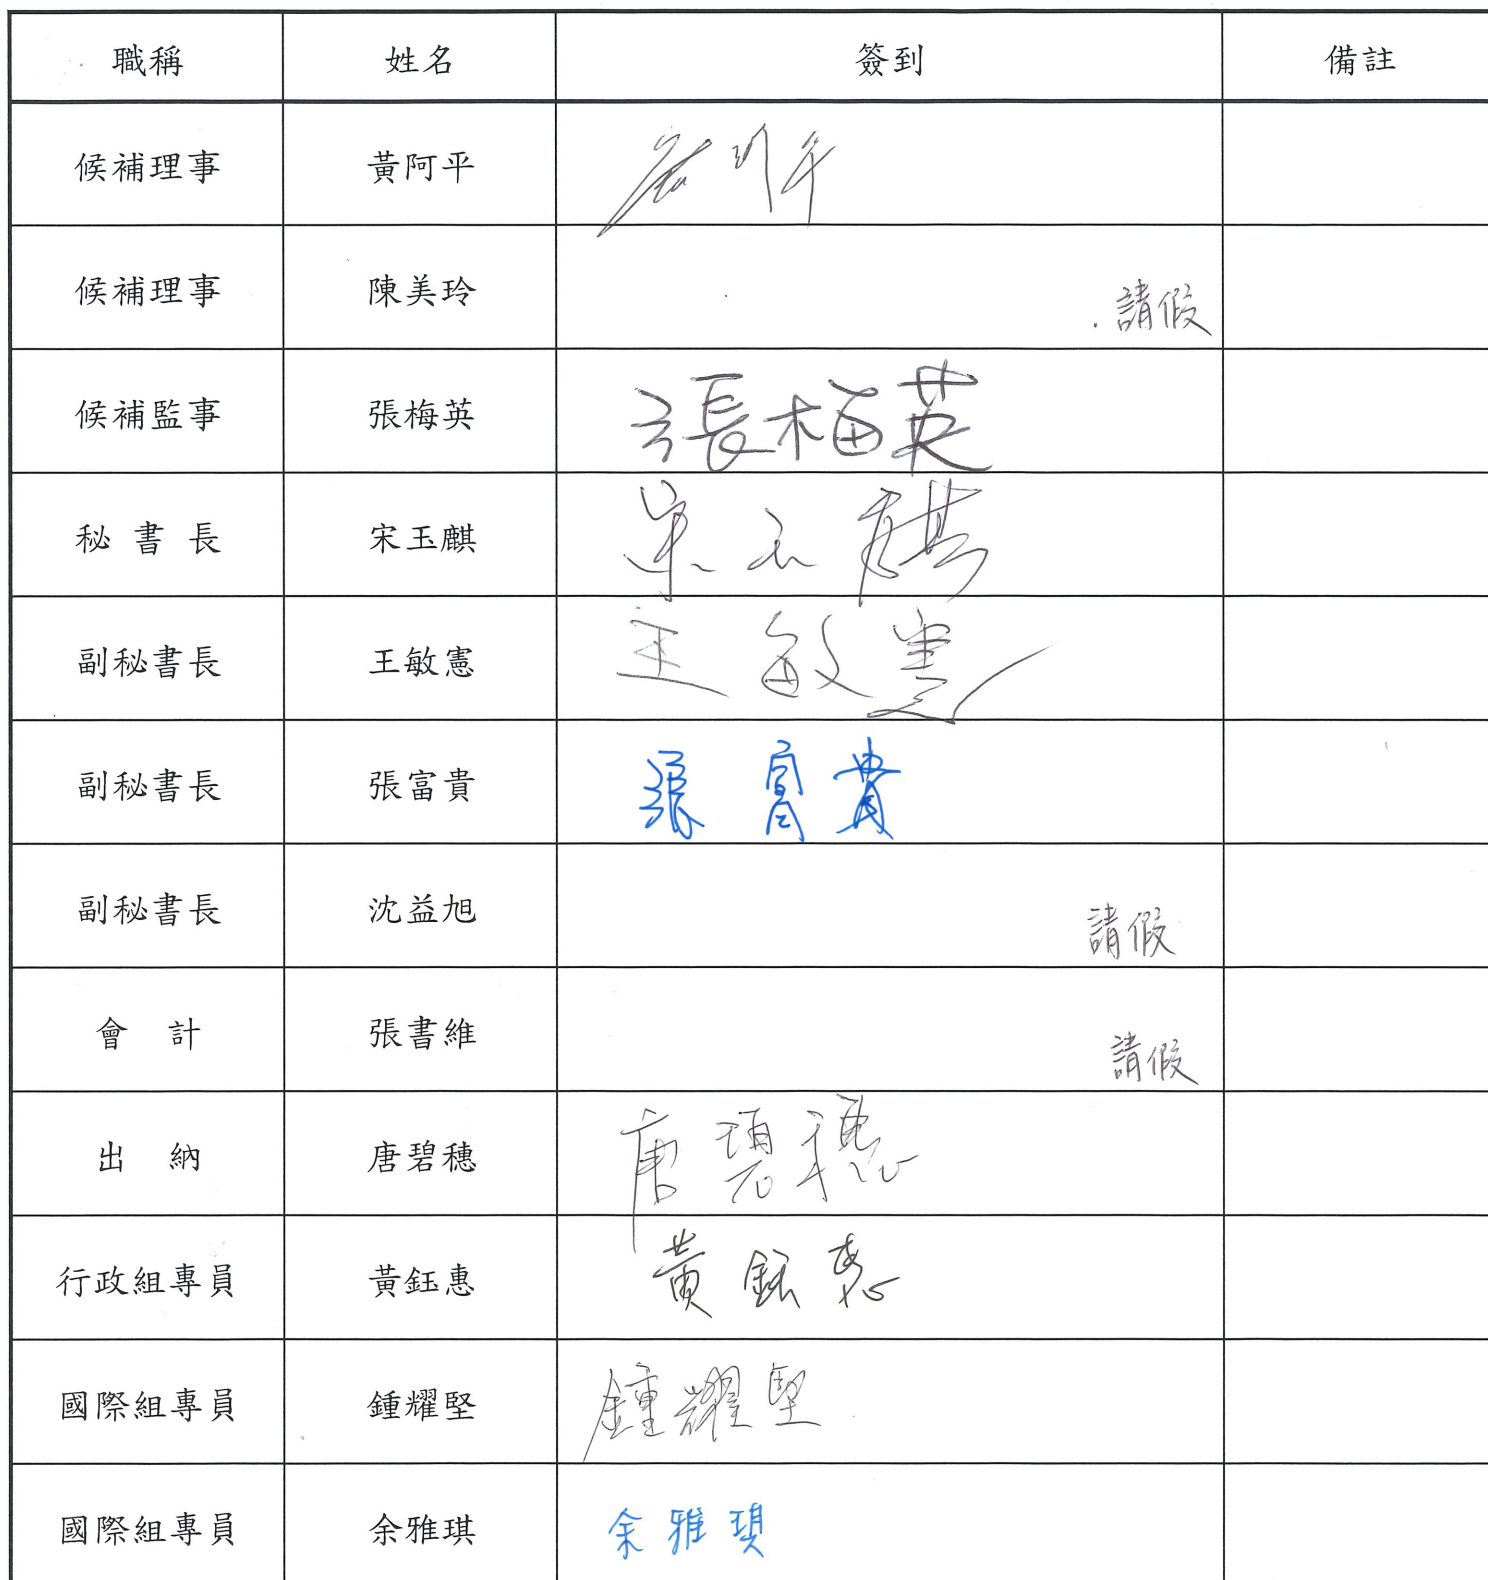 職稱 姓名 簽到 備註
候補理事 黃阿平 黃阿平
候補理事 陳美玲 請假
候補監事 張梅英 張梅英
秘書長 宋玉麒 宋玉麒
副秘書長 王敏憲 王敏憲
副秘書長 張富貴 張富貴
副秘書長 沈益旭 請假
會計 張書維 請假
出納 唐碧穗 唐碧穗
行政組專員 黃鈺惠 黃鈺惠
國際組專員 鍾耀堅 鍾耀堅
國際組專員 余雅琪 余雅琪